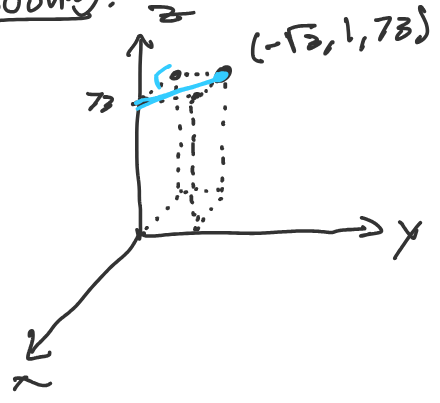 z
(-√3, 1, 73)
r
73
y
x